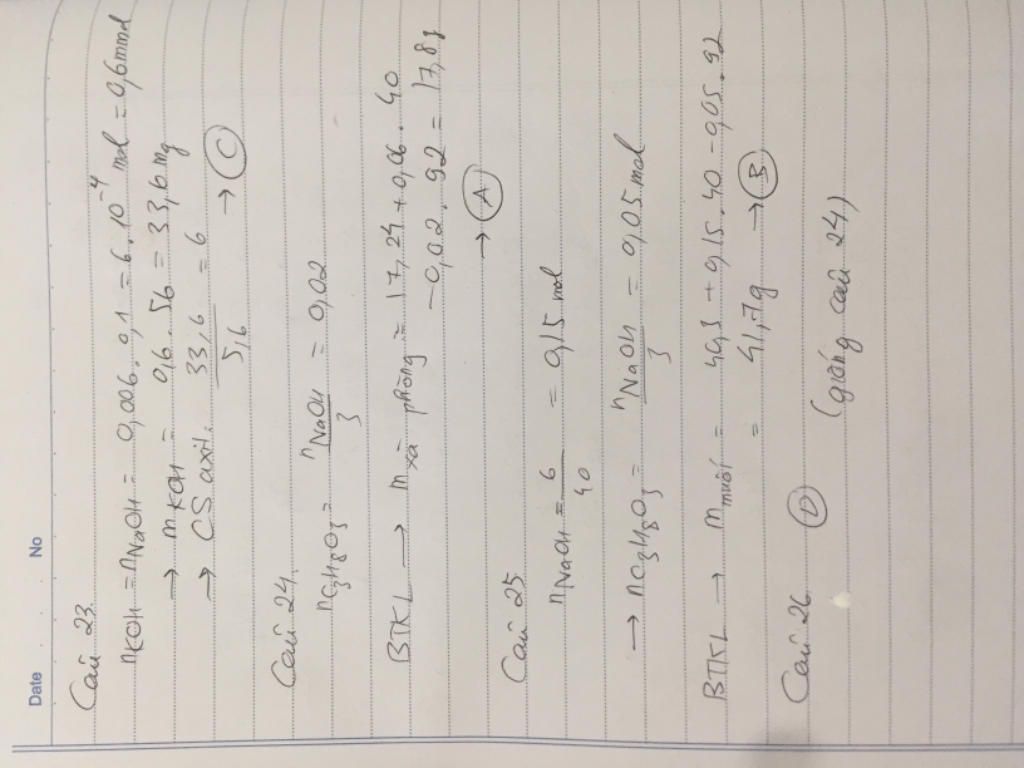 Date No
Câu 23.
nKOH = nNaOH = 0,006. 0,1 = 6.10⁻⁴ mol = 0,6 mmol
→ mKOH = 0,6. 56 = 33,6 mg
→ CS axit: 33,6/5,6 = 6
→ C
Câu 24.
nC3H8O3 = nNaOH/3 = 0,02
BTKL → m xà phòng = 17,24 + 0,06. 40
- 0,02. 92 = 17,8g
→ A
Câu 25
nNaOH = 6/40 = 0,15 mol
→ nC3H8O3 = nNaOH/3 = 0,05 mol
BTKL → m muối = 40,3 + 0,15. 40 - 0,05. 92
= 41,7g → B
Câu 26 D
(giống câu 24)